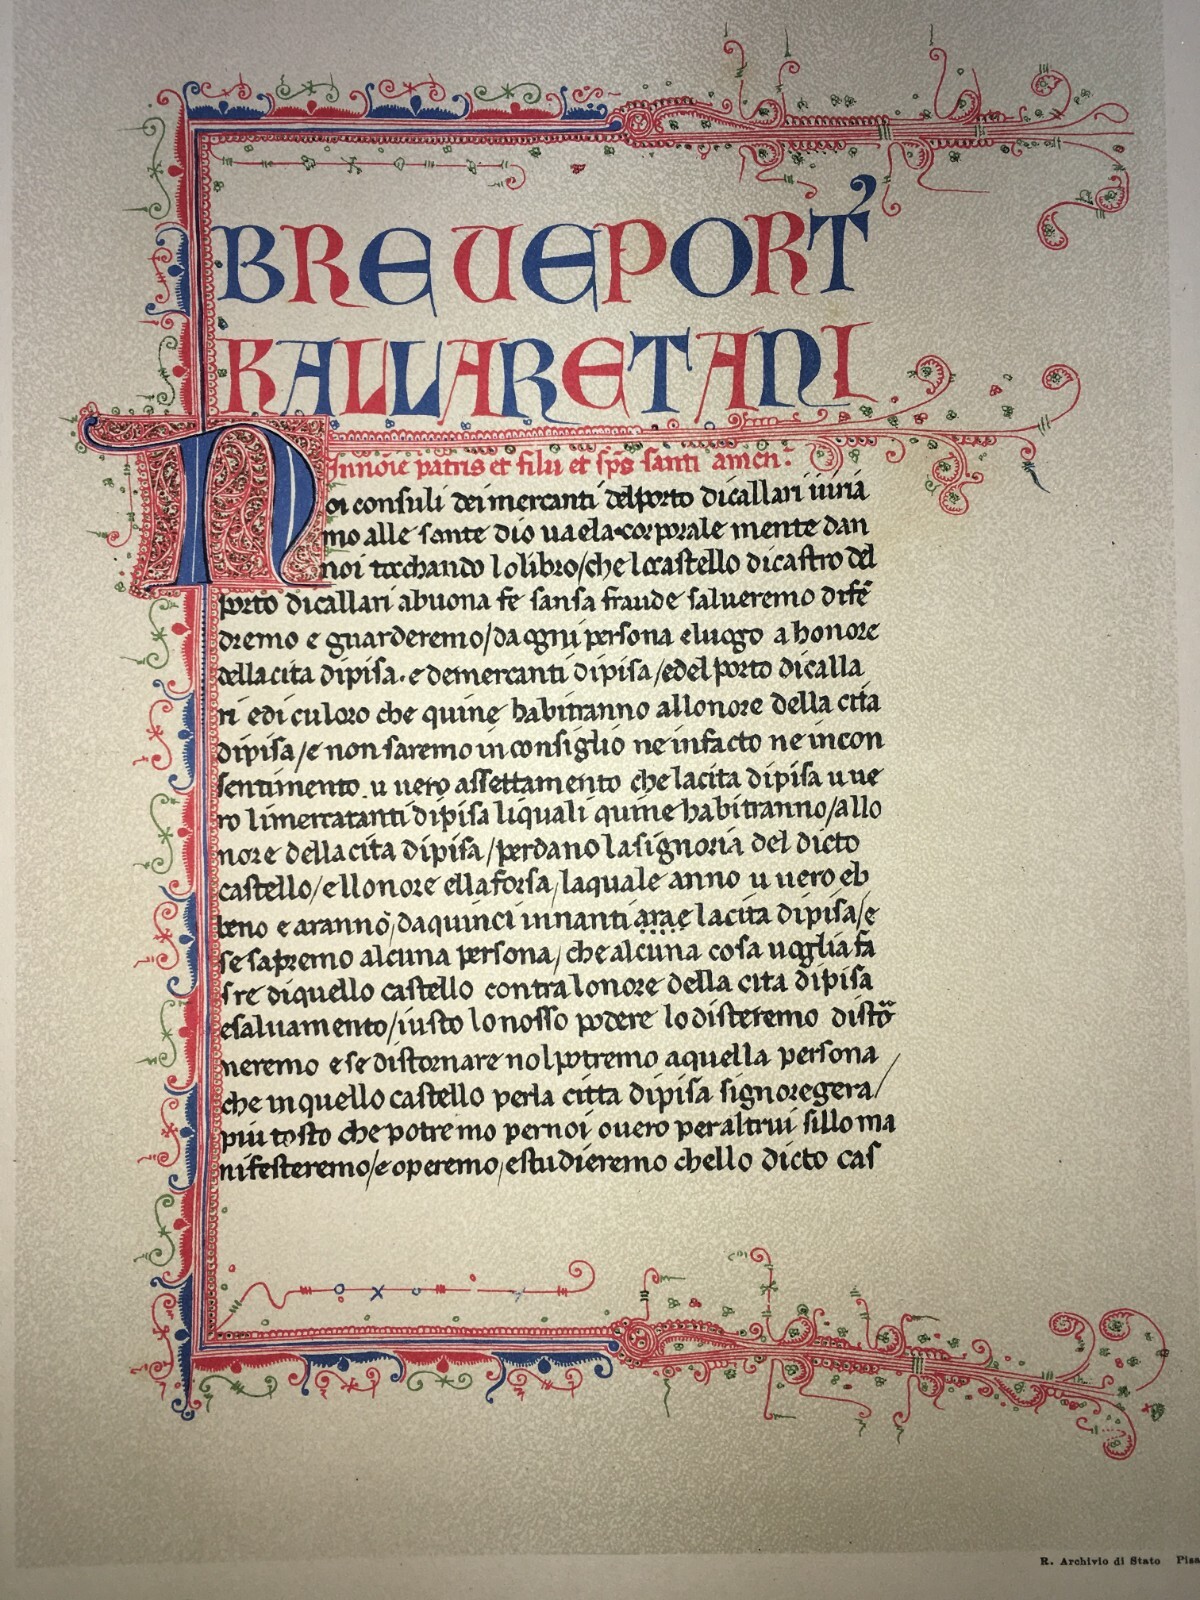 BREVE PORT'
KALLARETANI
In noīe patris et filii et sp̄s santi amen.
Noi consuli dei mercanti del porto di callari iuria
mo alle sante dio vaela corporale mente dan
noi tocchando lo libro/che lo castello di castro del
porto di callari a buona fe sansa fraude salueremo difē
dremo e guarderemo/da ogni persona e luogo a honore
della cita di pisa. e de mercanti di pisa/e del porto di calla
ri e di culoro che quine habitranno allonore della cita
di pisa/e non saremo in consiglio ne in facto ne in con
sentimento u uero assettamento che la cita di pisa u ue
ro li mercatanti di pisa li quali quine habitranno/allo
nore della cita di pisa/perdano la signoria del dicto
castello/e llonore e lla forsa/la quale anno u uero eb
beno e aranno/da quinci innanti arae la cita di pisa/e
se sapremo alcuna persona/che alcuna cosa uoglia fa
s re di quello castello contra lonore della cita di pisa
e saluamento/iusto lo nosso podere lo disteremo distō
neremo e se distornare nol potremo a quella persona
che in quello castello per la citta di pisa signoregera/
piu tosto che potremo per noi o uero per altrui sillo ma
nifesteremo/e operemo/e studieremo che llo dicto cas
R. Archivio di Stato Pisa